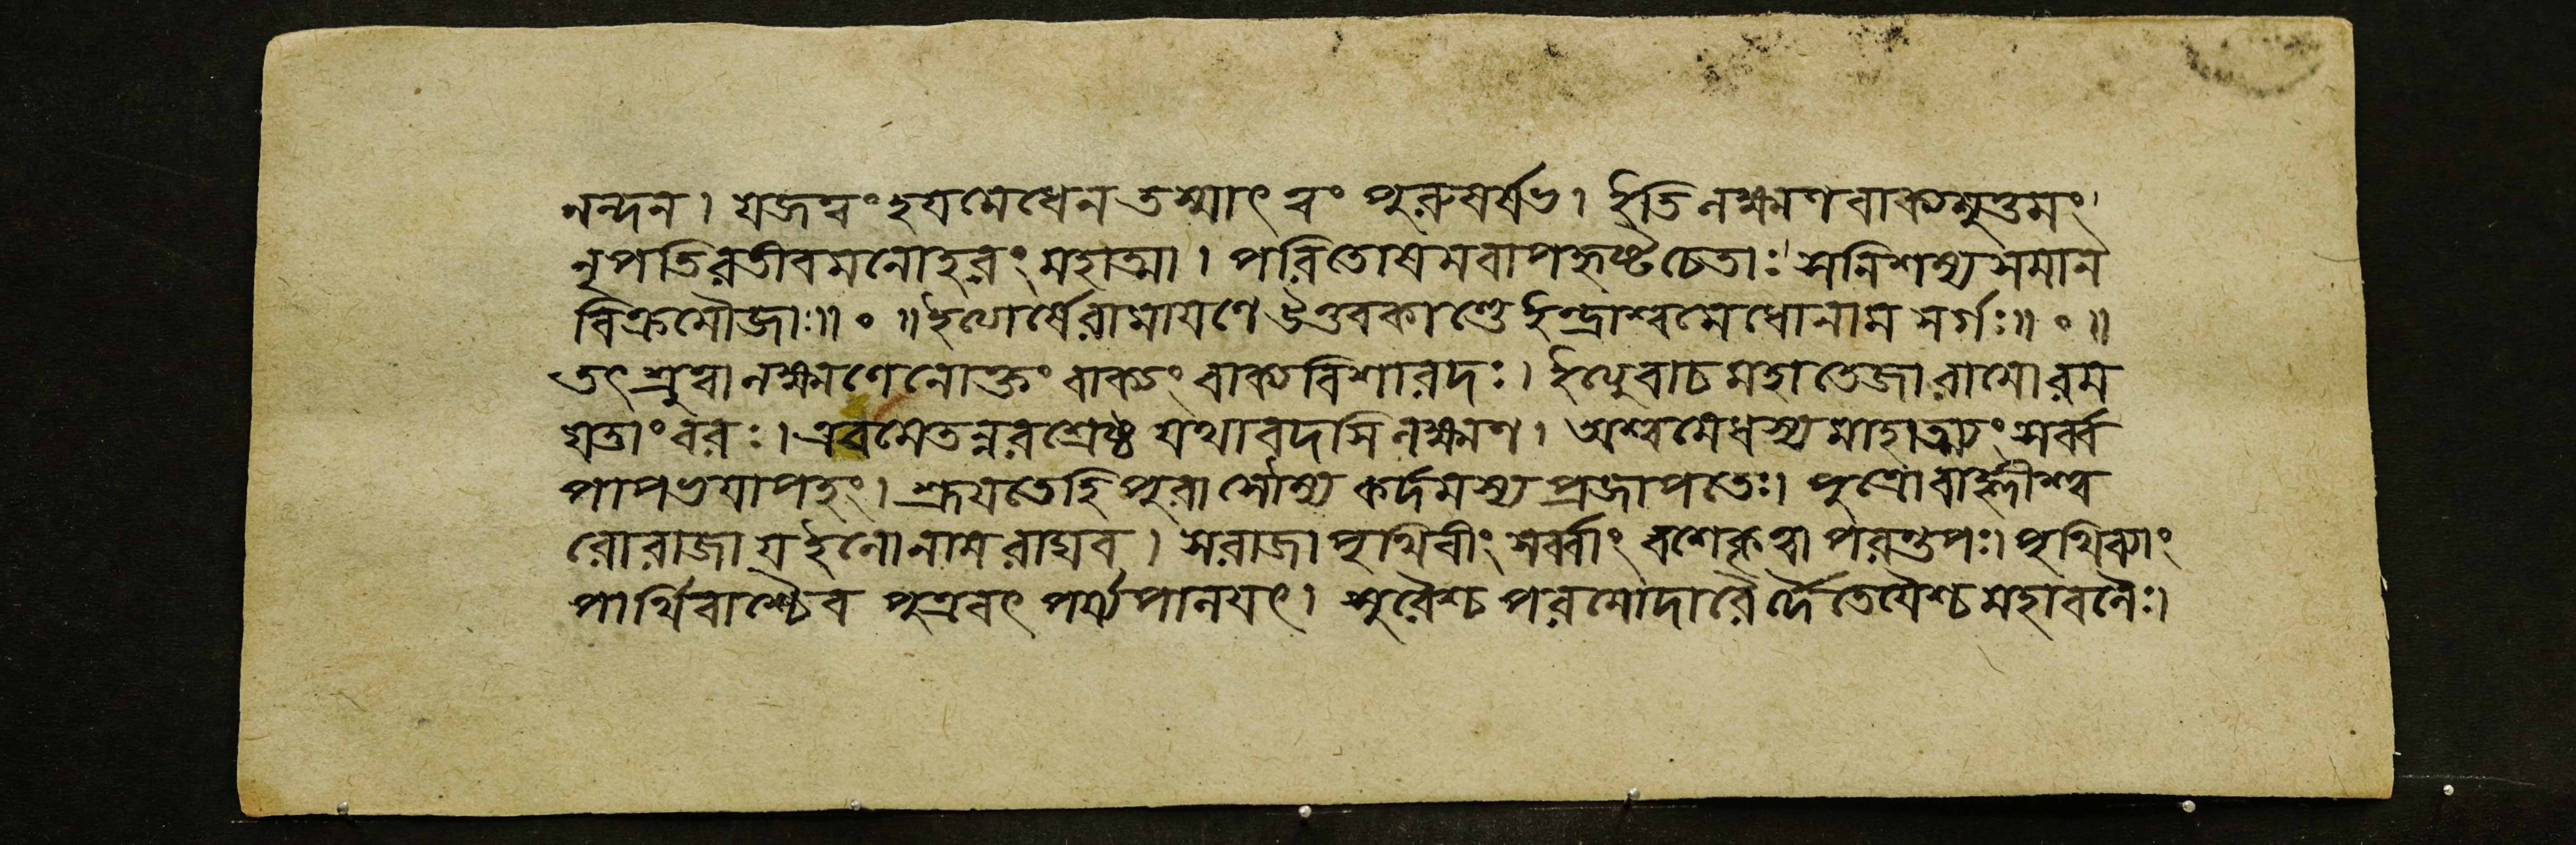 নন্দন । যজত্বং হয়মেধেন তস্মাৎ ত্বং পুরুষর্ষভ । ইতি লক্ষ্মণ বাক্যমুত্তমং
নৃপতিরতীবমনোহরং মহাত্মা । পরিতোষমবাপহৃষ্টচেতাঃ সনিশম্য সমান
বিক্রমৌজাঃ॥ ० ॥ইত্যার্ষেরামায়ণে উত্তরকাণ্ডে ইন্দ্রাশ্বমেধোনাম সর্গঃ॥ ० ॥
তৎ শ্রুত্বা লক্ষ্মণেনোক্তং বাক্যং বাক্যবিশারদঃ । ইত্যুবাচ মহাতেজা রামো রম
য়তাং বরঃ । এবমেতন্নরশ্রেষ্ঠ যথাবদসি লক্ষ্মণ । অশ্বমেধস্য মাহাত্ম্যং সর্ব্ব
পাপভয়াপহং । শ্রূয়তেহি পুরা সৌম্য কর্দমস্য প্রজাপতেঃ । পুত্রো বাহ্লীশ্ব
রো রাজা য ইলো নাম রাঘব । স রাজা পৃথিবীং সর্ব্বাং বশে কৃত্বা পরন্তপঃ । পৃথিব্যাং
পার্থিবাংশ্চৈব পুত্রবৎ পর্য্যপালয়ৎ । সুরৈশ্চ পরমোদারৈর্দৈতেয়ৈশ্চ মহাবলৈঃ ।